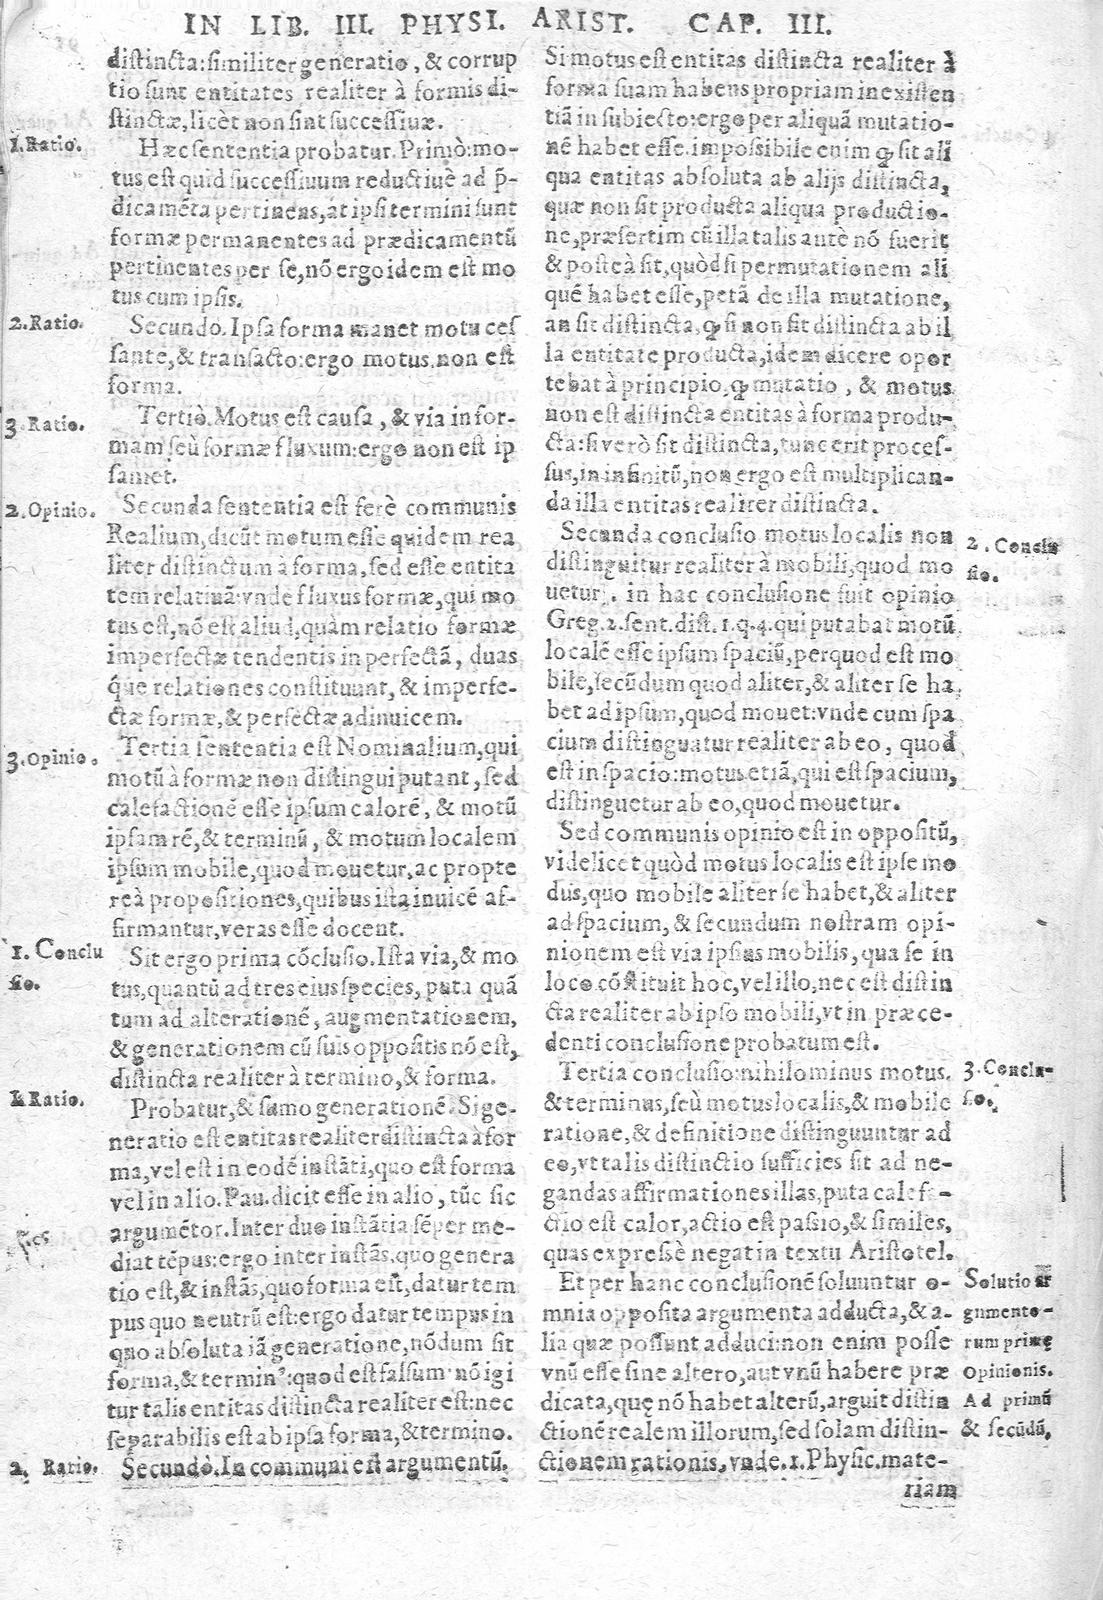 IN LIB. III. PHYSI. ARIST. CAP. III.
distincta:similiter generatio, & corrup
tio sunt entitates realiter à formis di-
stinctæ, licèt non sint successiuæ.
1. Ratio.
Hæc sententia probatur. Primò: mo-
tus est quid successiuum reductiuè ad p̃-
dicamẽta pertinens, at ipsi termini sunt
formæ permanentes ad prædicamentũ
pertinentes per se, nõ ergo idem est mo
tus cum ipsis.
2. Ratio.
Secundò. Ipsa forma manet motu ces
sante, & transacto: ergo motus non est
forma.
3. Ratio.
Tertiò. Motus est causa, & via in for-
mam seù formæ fluxum: ergo non est ip
samet.
2. Opinio.
Secunda sententia est ferè communis
Realium, dicũt motum esse quidem rea
liter distinctum à forma, sed esse entita
tem relatiuã: vnde fluxus formæ, qui mo
tus est, nõ est aliud, quàm relatio formæ
imperfectæ tendentis in perfectã, duas
q́ue relationes constituunt, & imperfe-
ctæ formæ, & perfectæ adinuicem.
3. Opinio.
Tertia sententia est Nominalium, qui
motũ à formæ non distingui putant, sed
calefactionẽ esse ipsum calorẽ, & motũ
ipsam rẽ, & terminũ, & motum localem
ipsum mobile, quod mouetur, ac propte
reà propositiones, quibus ista inuicẽ af-
firmantur, veras esse docent.
1. Conclu
sio.
Sit ergo prima cõclusio. Ista via, & mo
tus, quantũ ad tres eius species, puta quã
tum ad alterationẽ, augmentationem,
& generationem cũ suis oppositis nõ est,
distincta realiter à termino, & forma.
1. Ratio.
Probatur, & sumo generationẽ. Si ge-
neratio est entitas realiter distincta à for
ma, vel est in eodẽ instãti, quo est forma
vel in alio. Pau. dicit esse in alio, tũc sic
argumẽtor. Inter duo instãtia sẽper me-
diat tẽpus: ergo inter instãs, quo genera
tio est, & instãs, quo forma est, datur tem
pus quo neutrũ est: ergo datur tempus in
quo absoluta iã generatione, nõdum sit
forma, & termin⁹: quod est falsum nõ igi
tur talis entitas distincta realiter est: nec
separabilis est ab ipsa forma, & termino.
2. Ratio.
Secundò. In communi est argumentũ.
Si motus est entitas distincta realiter à
forma suam habens propriam inexisten
tiã in subiecto: ergo per aliquã mutatio-
nẽ habet esse. impossibile enim ꝙ sit ali
qua entitas absoluta ab alijs distincta,
quæ non sit producta aliqua productio-
ne, præsertim cũ illa talis antè nõ fuerit
& posteà sit, quòd si per mutationem ali
quẽ habet esse, petã de illa mutatione,
an sit distincta, ꝙ si non sit distincta ab il
la entitate producta, idem dicere opor
tebat à principio, ꝙ mutatio, & motus
non est distincta entitas à forma produ-
cta: si verò sit distincta, tunc erit proces-
sus, in infinitũ, non ergo est multiplican-
da illa entitas realiter distincta.
2. Conclu
sio.
Secunda conclusio motus localis non
distinguitur realiter à mobili, quod mo
uetur. in hac conclusione fuit opinio
Greg. 2. sent. dist. 1. q. 4. qui putabat motũ
localẽ esse ipsum spaciũ, per quod est mo
bile, secũdum quod aliter, & aliter se ha
bet ad ipsum, quod mouet: vnde cum spa
cium distinguatur realiter ab eo, quod
est in spacio: motus etiã, qui est spacium,
distinguetur ab eo, quod mouetur.
Sed communis opinio est in oppositũ,
videlicet quòd motus localis est ipse mo
dus, quo mobile aliter se habet, & aliter
ad spacium, & secundum nostram opi-
nionem est via ipsius mobilis, qua se in
loco cõstituit hoc, vel illo, nec est distin
cta realiter ab ipso mobili, vt in præce-
denti conclusione probatum est.
3. Conclu-
sio.
Tertia conclusio: nihilominus motus.
& terminus, seù motus localis, & mobile
ratione, & definitione distinguuntur ad
eo, vt talis distinctio sufficies sit ad ne-
gandas affirmationes illas, puta calefa-
ctio est calor, actio est passio, & similes,
quas expressè negat in textu Aristotel.
Solutio ar
gumento-
rum primę
Opinionis.
Ad primũ
& secũdũ,
Et per hanc conclusionẽ soluuntur o-
mnia opposita argumenta adducta, & a-
lia quæ possunt adduci: non enim posse
vnũ esse sine altero, aut vnũ habere præ
dicata, quę nõ habet alterũ, arguit distin
ctionẽ realem illorum, sed solam distin-
ctionem rationis, vnde. 1. Physic. mate-
riam